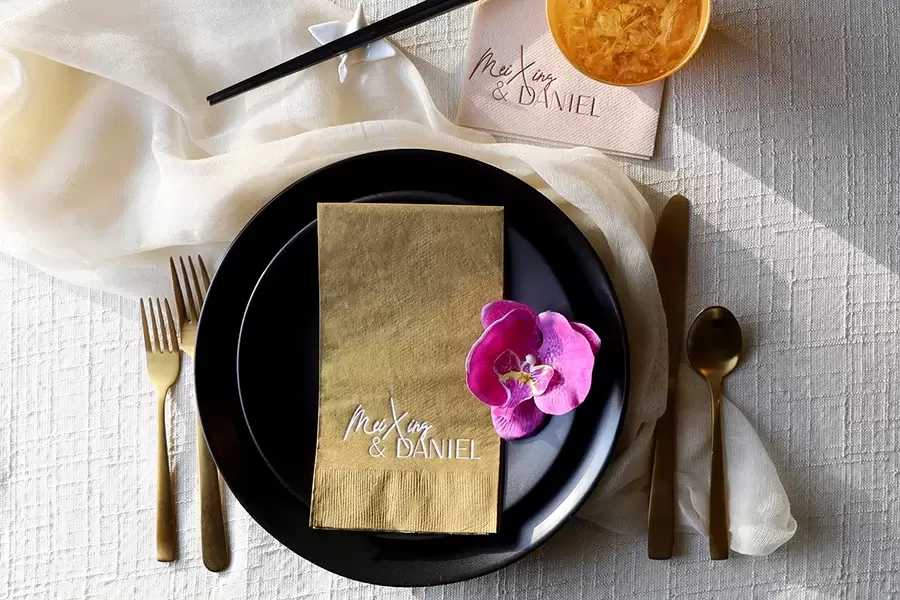 Mei Xing
& DANIEL
Mei Xing
& DANIEL